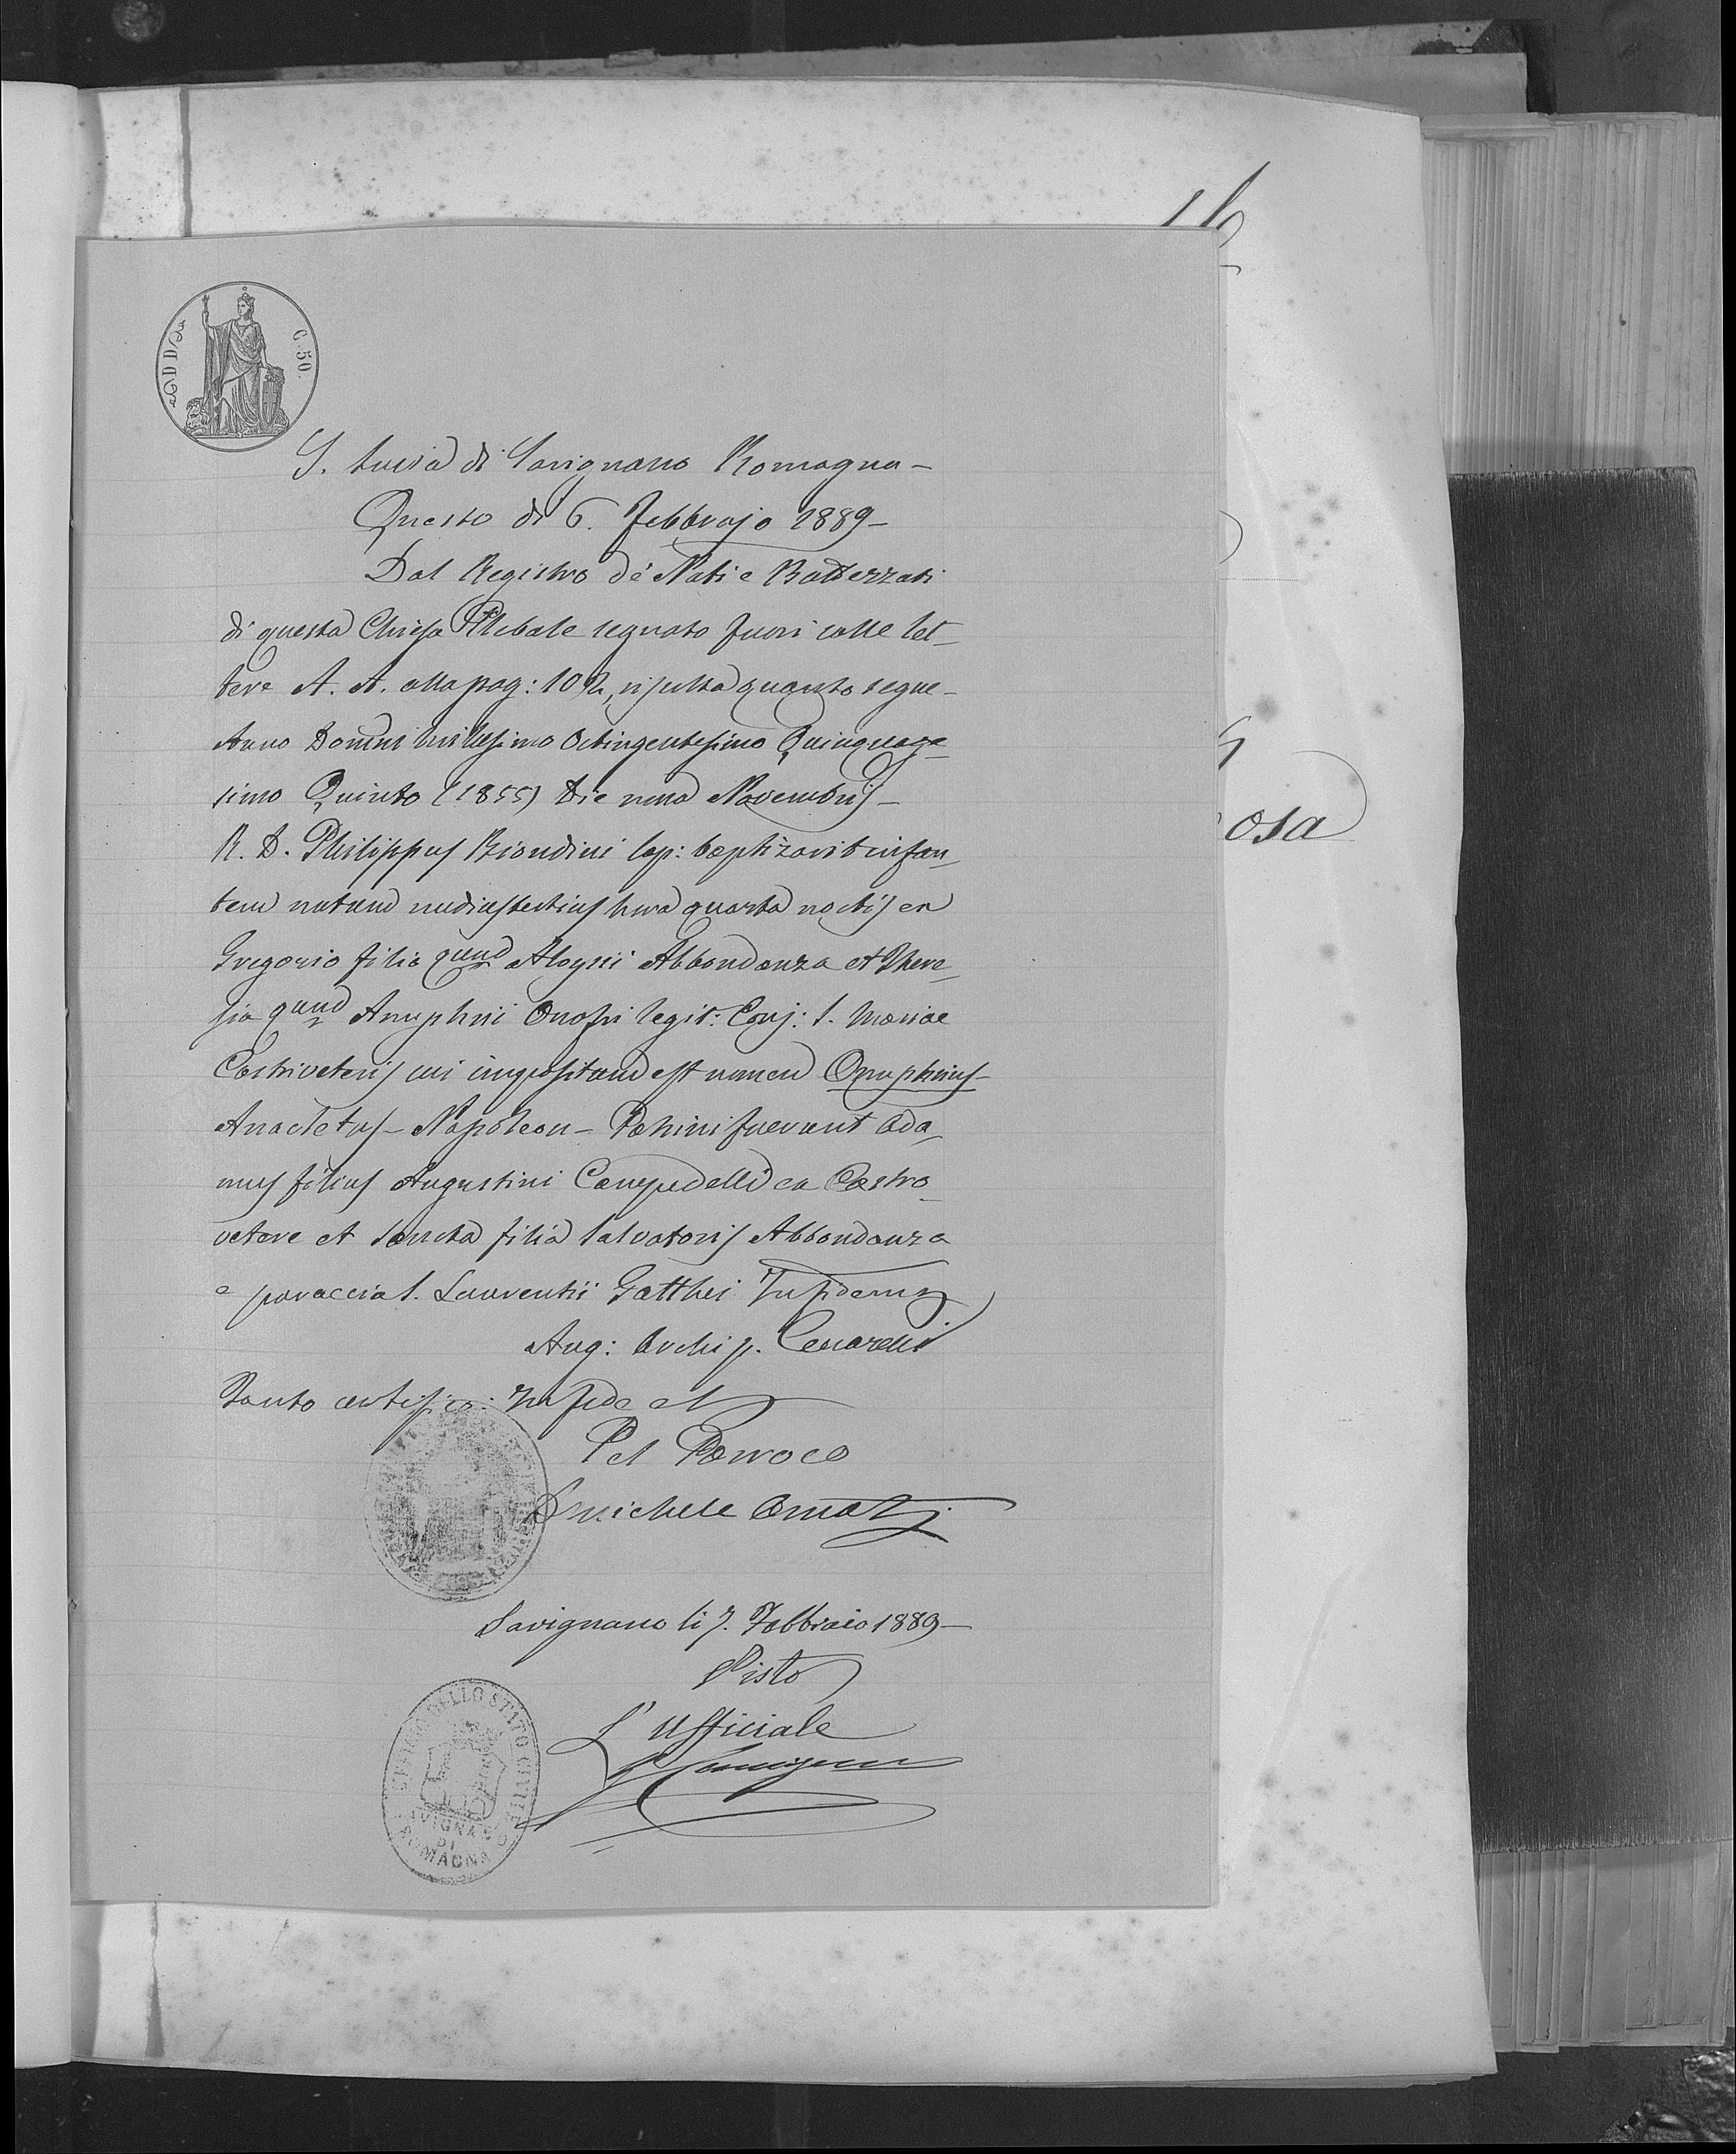 16
C. 50.
S. Lucia di Savignano Romagna -
Questo dì 6. Febbrajo 1889 -
Dal Registro de' Nati e Battezzati
di questa Chiesa Plebale segnato fuori colle let_
tere A. A. alla pag: 102, risulta quanto segue -
Anno Domini Millesimo Octingentesimo Quinquage_
simo Quinto (1855) Die nona Novembris -
R. D. Philippus Biondini Cap: baptizavit infan_
tem natum nudiustertius hora quarta noctis ex
Gregorio filio qund Aloysii Abbondanza et There_
sia qund Onuphrii Onofri legit: Conj: S. Mariae
Castriveteris cui impositum est nomen Onuphrius -
Anacletus - Napoleon - Patrini fuerunt Ada_
mus filius Augustini Campedelli ex Castro_
vetere et Sancta filia Salvatoris Abbondanza
e paraecia S. Laurentii Gatthei In fidem
Aug: Archip. Cenarelli
Tanto certifico: In fede
Pel Parroco
D Michele Amati
Savignano li 7. Febbraio 1889 -
Visto
L'Ufficiale
DELLO STATO CIVILE
SAVIGNANO
DI
ROMAGNA
osa